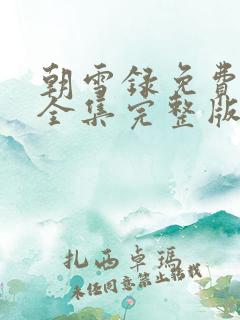 朝雪録免費
全集完整版
扎西卓瑪
未经同意禁止转载